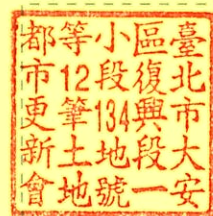 臺北市大安
區復興段一
小段134地號
等12筆土地
都市更新會